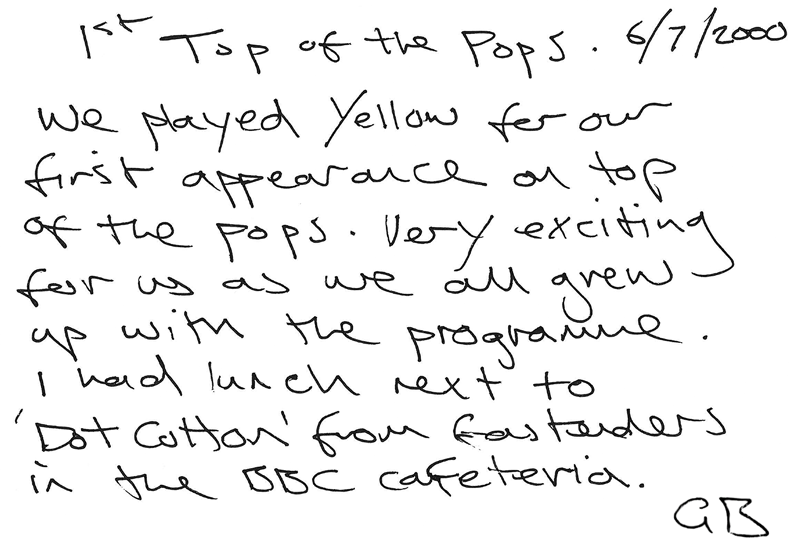 1st Top of the Pops. 6/7/2000
We played Yellow for our
first appearance on top
of the pops. Very exciting
for us as we all grew
up with the programme.
I had lunch next to
'Dot Cotton' from Eastenders
in the BBC cafeteria.
GB